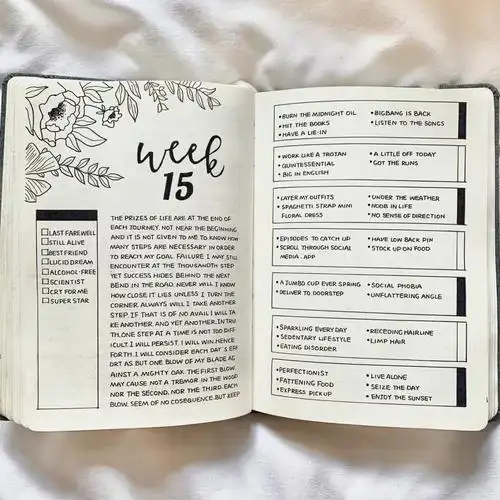 week
15
LAST FAREWELL
STILL ALIVE
BEST FRIEND
LUCID DREAM
ALCOHOL-FREE
SCIENTIST
CRY FOR ME
SUPER STAR
THE PRIZES OF LIFE ARE AT THE END OF
EACH JOURNEY, NOT NEAR THE BEGINNING
AND IT IS NOT GIVEN TO ME TO KNOW HOW
MANY STEPS ARE NECESSARY IN ORDER
TO REACH MY GOAL. FAILURE I MAY STILL
ENCOUNTER AT THE THOUSANDTH STEP
YET SUCCESS HIDES BEHIND THE NEXT
BEND IN THE ROAD. NEVER WILL I KNOW
HOW CLOSE IT LIES UNLESS I TURN THE
CORNER. ALWAYS WILL I TAKE ANOTHER
STEP. IF THAT IS OF NO AVAIL I WILL TA
KE ANOTHER, AND YET ANOTHER. IN TRU
TH, ONE STEP AT A TIME IS NOT TOO DIFF
ICULT. I WILL PERSIST. I WILL WIN. HENCE
FORTH, I WILL CONSIDER EACH DAY'S EFF
ORT AS BUT ONE. BLOW OF MY BLADE AG
AINST A MIGHTY OAK. THE FIRST BLOW
MAY CAUSE NOT A TREMOR IN THE WOOD
NOR THE SECOND, NOR THE THIRD. EACH
BLOW, SEEM OF NO COSEQUENCE. BUT KEEP
• BURN THE MIDNIGHT OIL
• HIT THE BOOKS
• HAVE A LIE-IN
• BIGBANG IS BACK
• LISTEN TO THE SONGS
• WORK LIKE A TROJAN
• QUINTESSENTIAL
• BIG IN ENGLISH
• A LITTLE OFF TODAY
• GOT THE RUNS
• LAYER MY OUTFITS
• SPAGHETTI STRAP MINI
FLORAL DRESS
• UNDER THE WEATHER
• NOOB IN LIFE
• NO SENSE OF DIRECTION
• EPISODES TO CATCH UP
• SCROLL THROUGH SOCIAL
MEDIA APP
• HAVE LOW BACK PIN
• STOCK UP ON FOOD
• A JUMBO CUP EVER SPRING
• DELIVER TO DOORSTEP
• SOCIAL PHOBIA
• UNFLATTERING ANGLE
• SPARKLING EVERY DAY
• SEDENTARY LIFESTYLE
• EATING DISORDER
• RECEDING HAIRLINE
• LIMP HAIR
• PERFECTIONIST
• FATTENING FOOD
• EXPRESS PICKUP
• LIVE ALONE
• SEIZE THE DAY
• ENJOY THE SUNSET